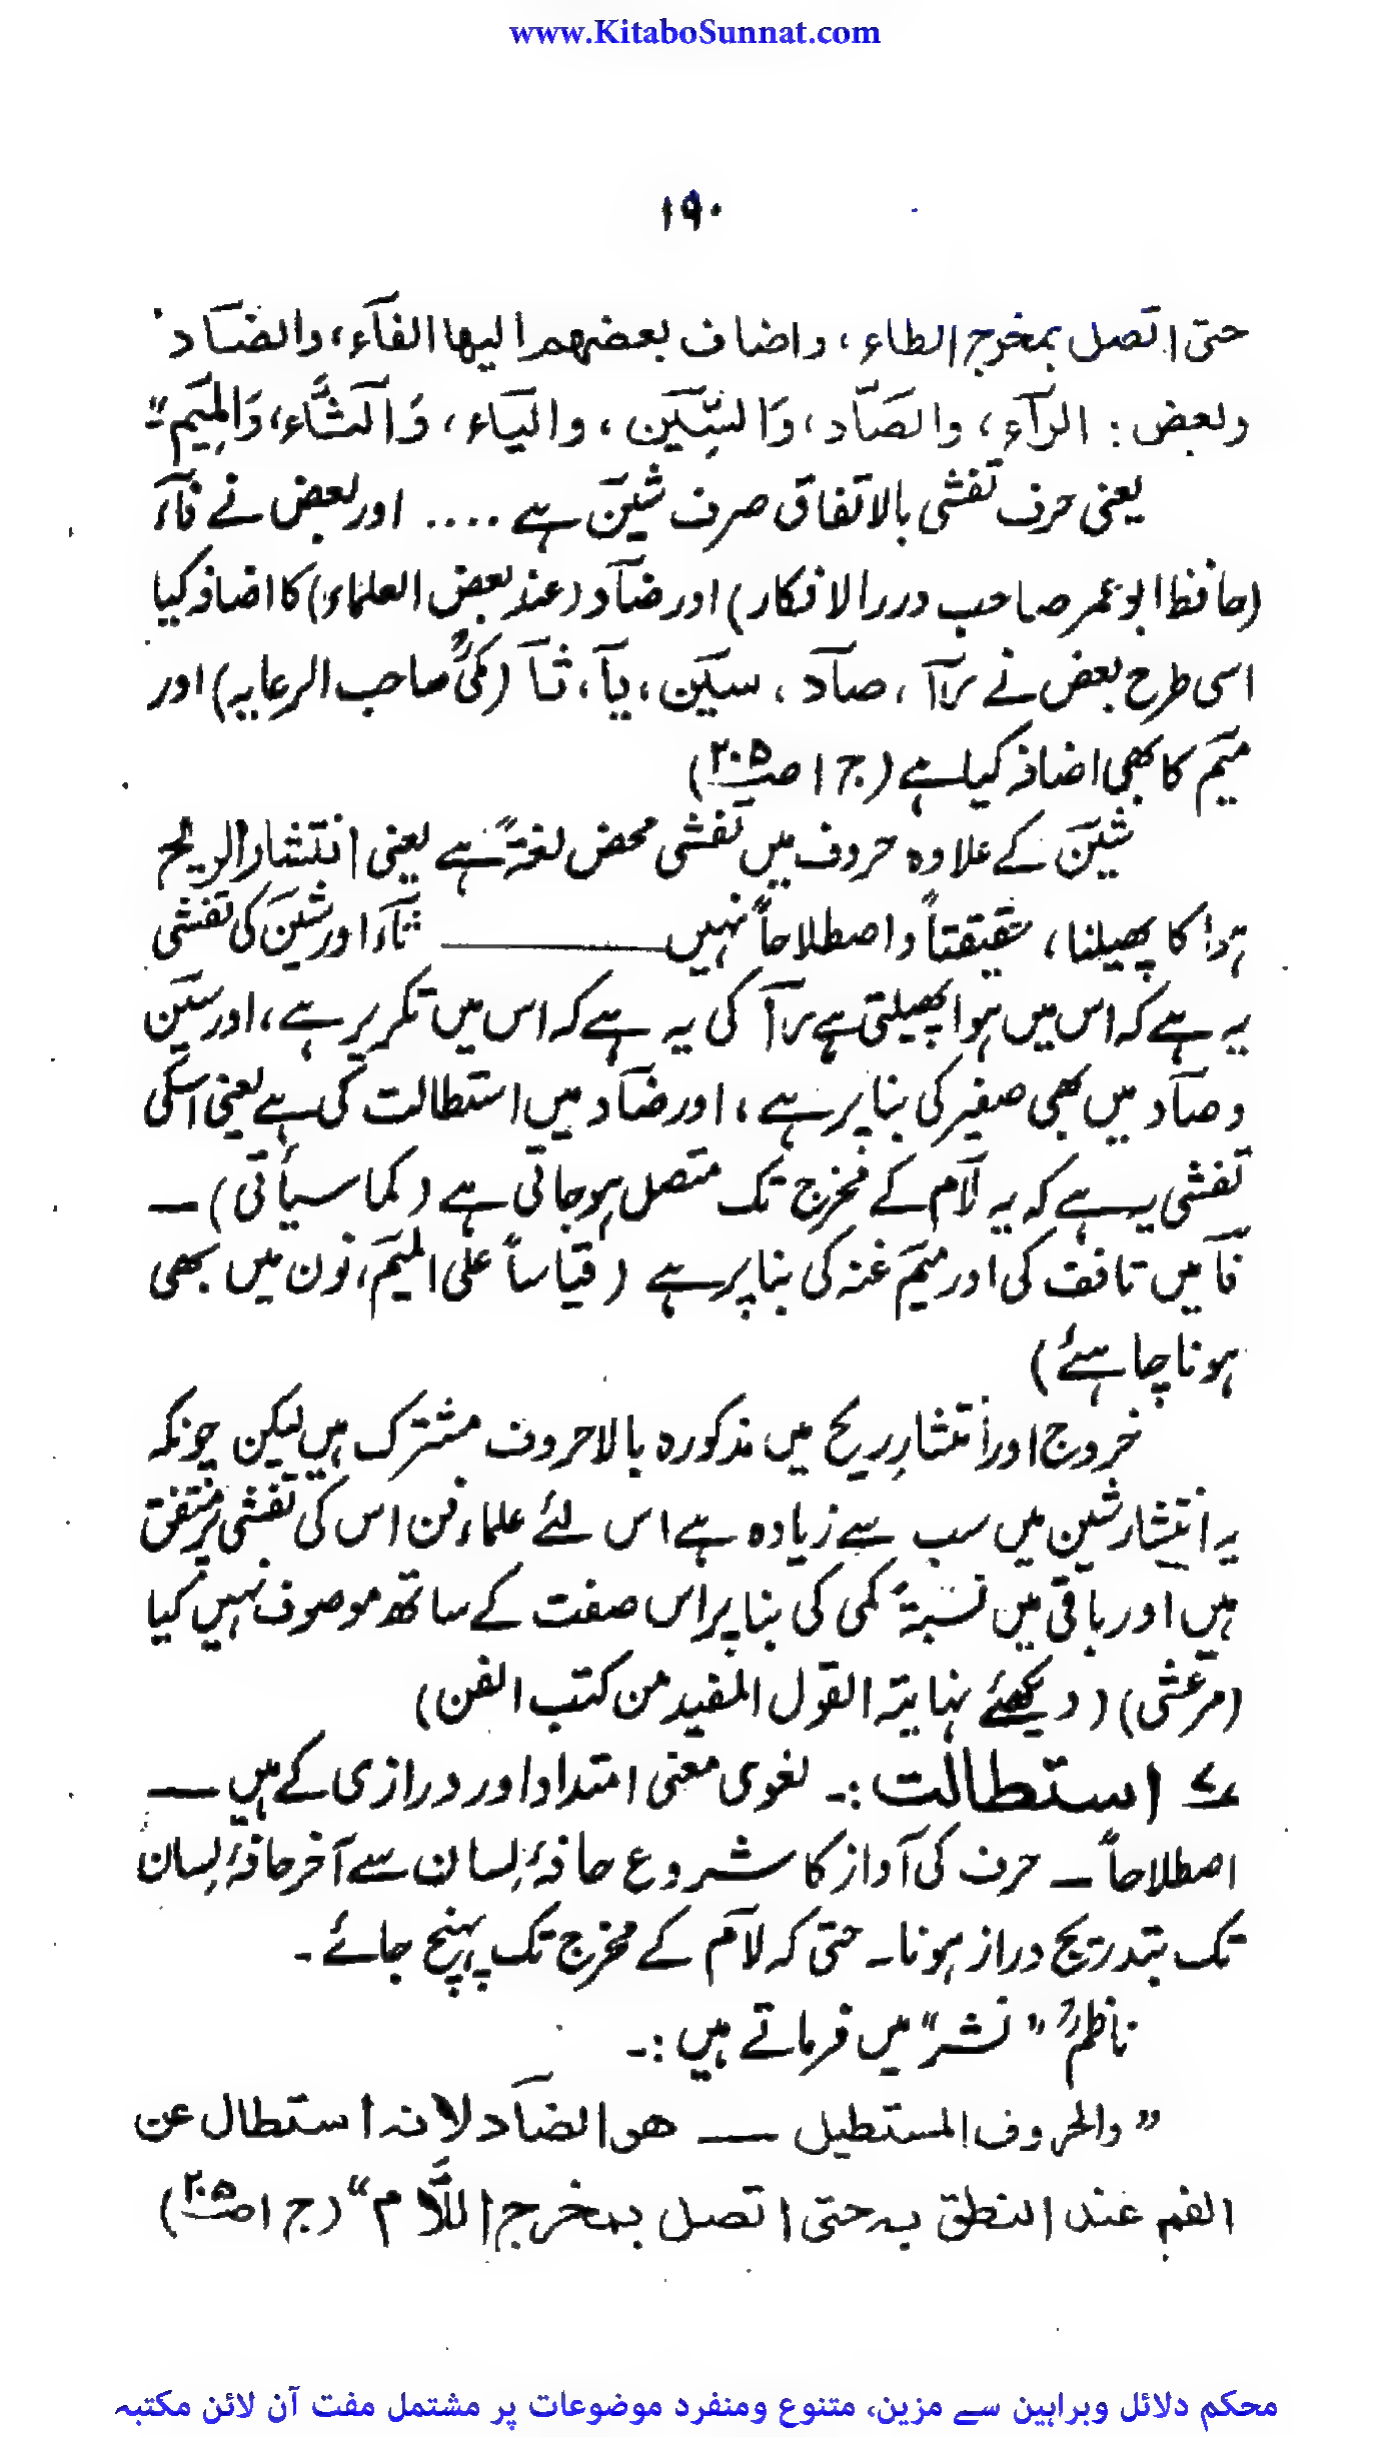 www.KitaboSunnat.com
۱۹۰
حتی اتصل بمخرج الطاء، واضاف بعضهم الیها الفآء، والضآد
وبعض: الرآء، والصّآد، وَالسِّیٓن، والیٓاء، وَالثّٓاء، وَالمِیٓم"
یعنی حرف تفشی بالاتفاق صرف شیٓن ہے .... اور بعض نے فآء
(حافظ ابو عمر صاحب درر الافکار) اور ضآد (عند بعض العلماء) کا اضافہ کیا
اسی طرح بعض نے رآ، صآد، سیٓن، یآ، ثآ (مکیؒ صاحب الرعایہ) اور
میٓم کا بھی اضافہ کیا ہے (ج ۱ ص ۲۰۵)
شیٓن کے علاوہ حروف میں تفشی محض لغۃً ہے یعنی انتشار الریح
ہوا کا پھیلنا، حقیقتاً و اصطلاحاً نہیں ——— ثآء اور شیٓن کی تفشی
یہ ہے کہ اس میں ہوا پھیلتی ہے رآ کی یہ ہے کہ اس میں تکریر ہے، اور سیٓن
و صآد میں بھی صفیر کی بنا پر ہے، اور ضآد میں استطالت کی ہے یعنی اسکی
تفشی یہ ہے کہ یہ لآم کے مخرج تک متصل ہو جاتی ہے (کما سیأتی) —
فآ میں تافف کی اور میٓم غنہ کی بنا پر ہے (قیاساً علی المیٓم، نون میں بھی
ہونا چاہئے)
خروج اور انتشارِ ریح میں مذکورہ بالا حروف مشترک ہیں لیکن چونکہ
یہ انتشار شین میں سب سے زیادہ ہے اس لئے علماء فن اس کی تفشی پر متفق
ہیں اور باقی میں نسبۃً کمی کی بنا پر اس صفت کے ساتھ موصوف نہیں کیا
(مرعشی) (دیکھئے نہایۃ القول المفید من کتب الفن)
۷ استطالت :۔ لغوی معنی امتداد اور درازی کے ہیں —
اصطلاحاً — حرف کی آواز کا شروع حافۂ لسان سے آخر حافۂ لسان
تک بتدریج دراز ہونا۔ حتی کہ لآم کے مخرج تک پہنچ جائے۔
ناظمؒ "نشر" میں فرماتے ہیں :۔
"والحروف المستطیل — هو الضآد لانہ استطال عن
الفم عند النطق بہ حتی اتصل بمخرج اللّآم" (ج ۱ ص ۲۰۵)
محکم دلائل وبراہین سے مزین، متنوع ومنفرد موضوعات پر مشتمل مفت آن لائن مکتبہ